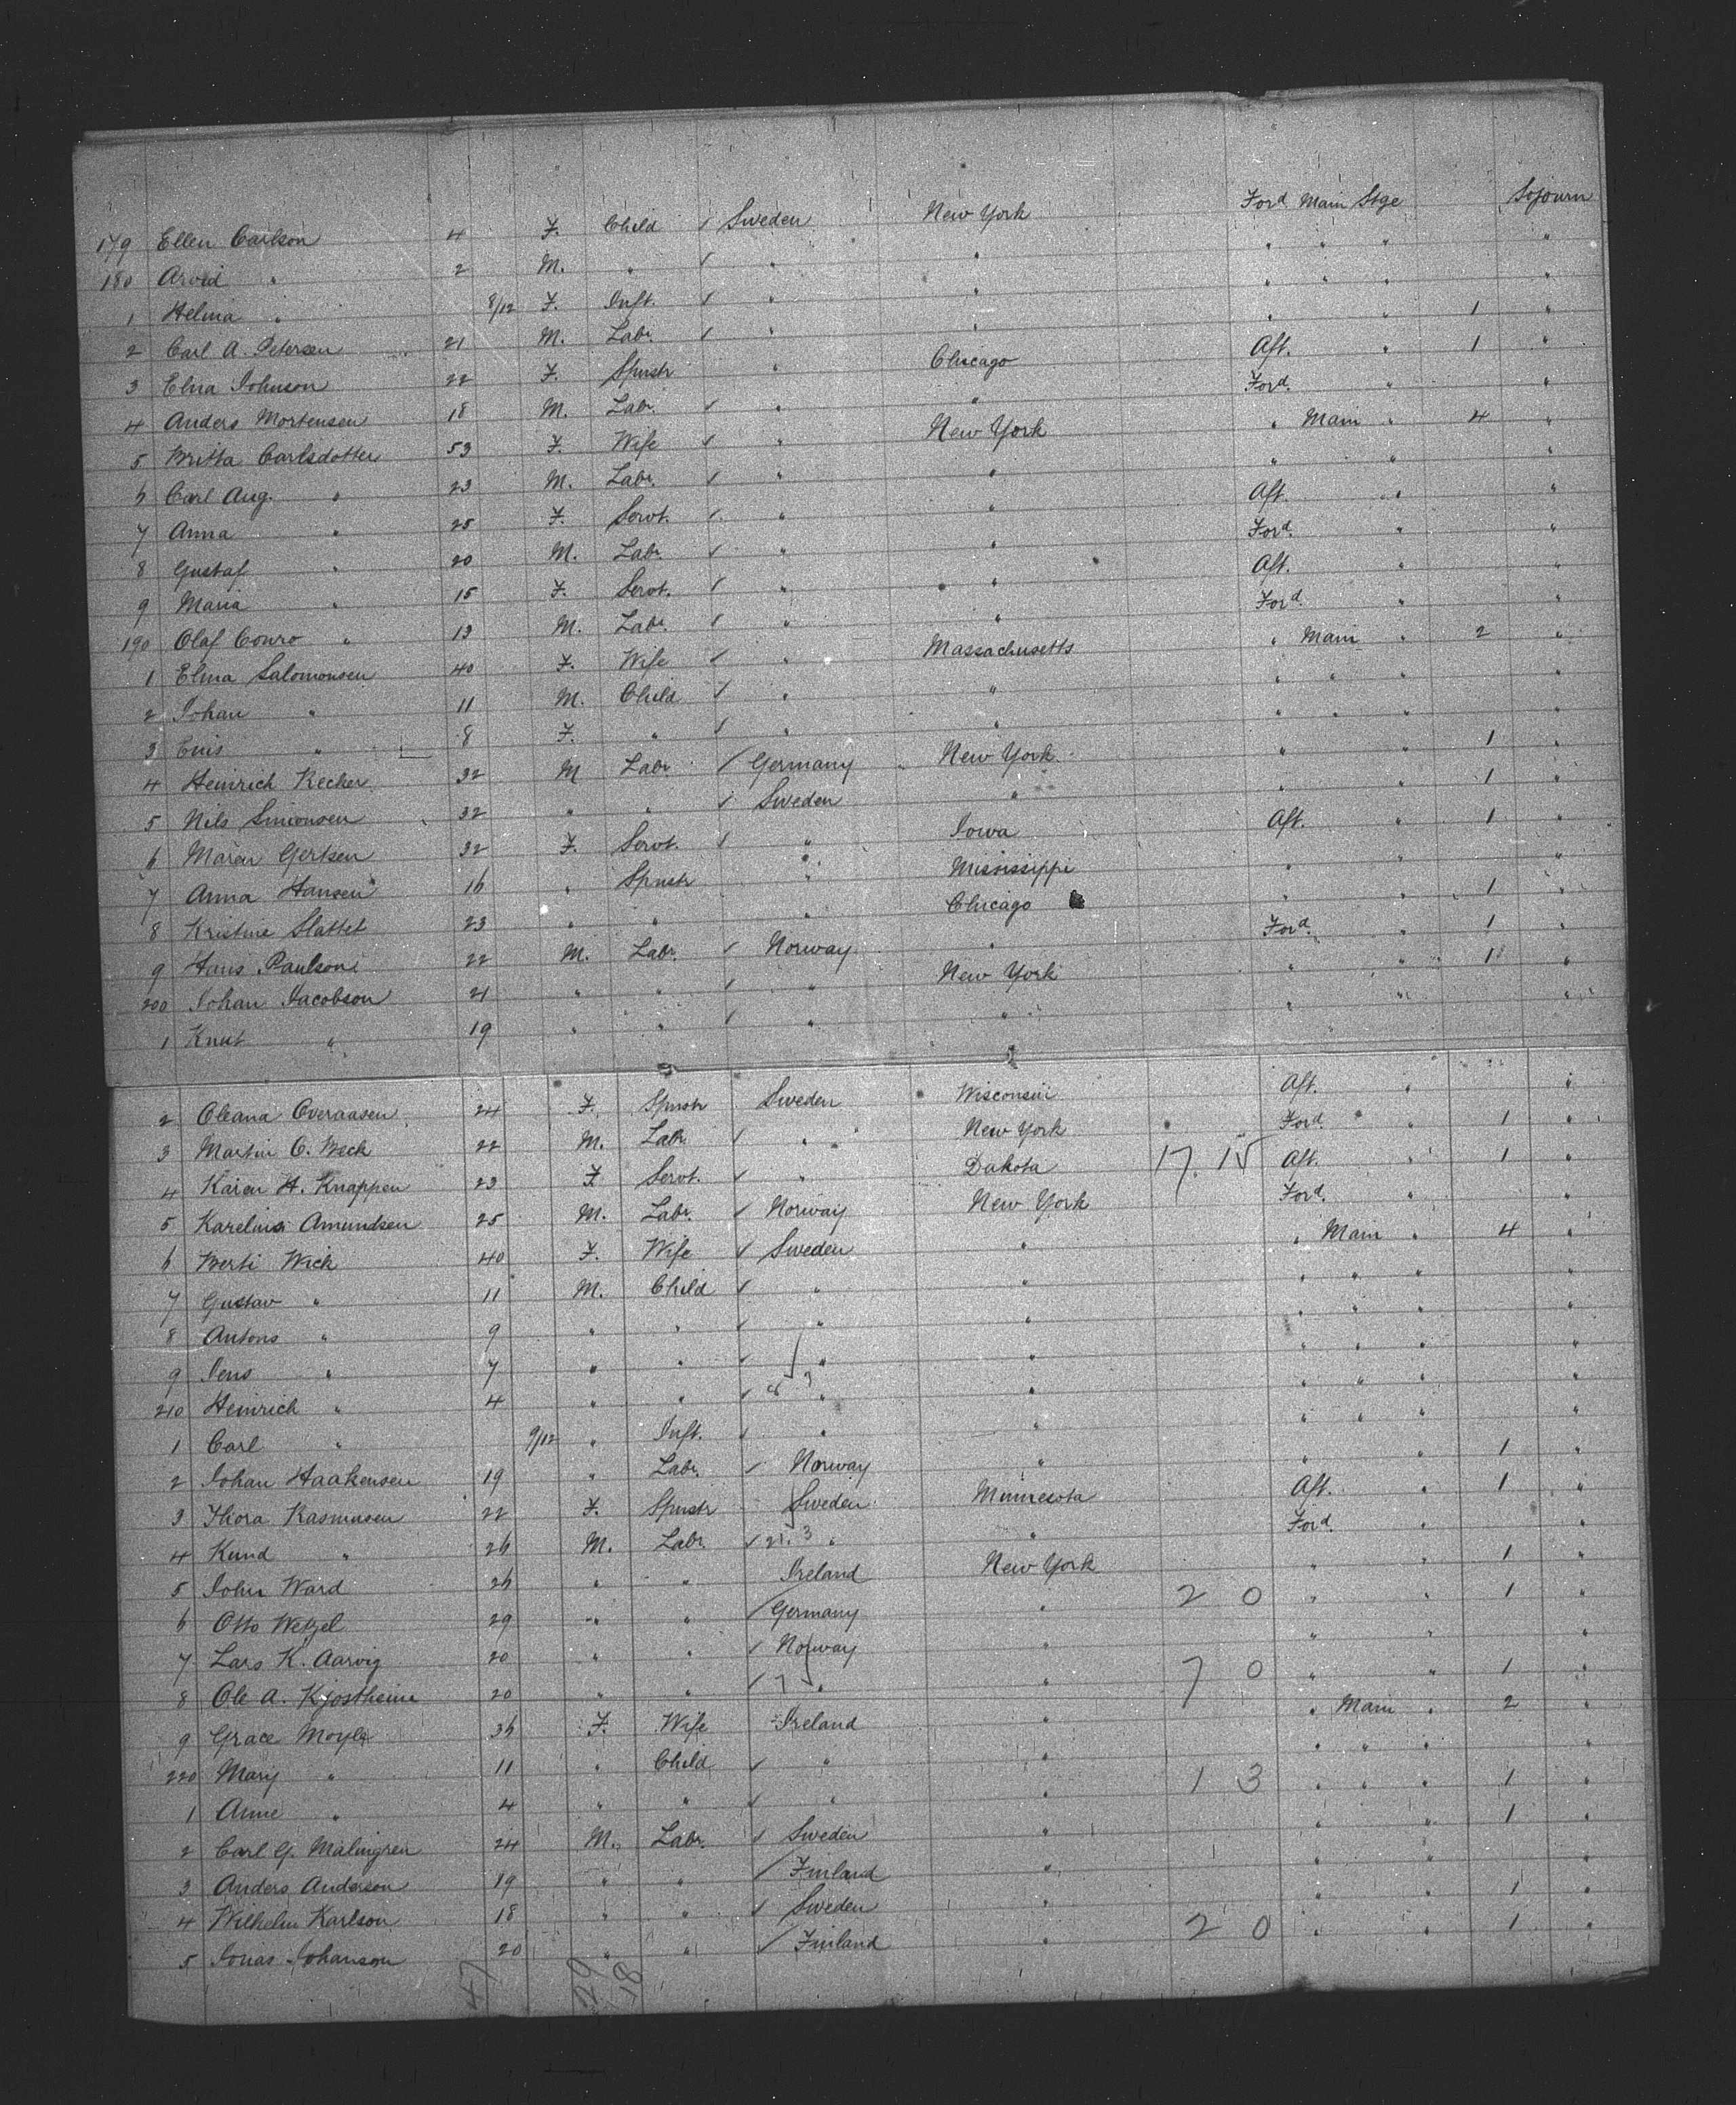 179 Ellen Carlson 4 F. Child ✓ Sweden New York Ford Main Stge Sojourn
180 Arvid " 2 M. " ✓ " " " " " "
1 Helma " 8/12 F. Inft. ✓ " " " " " "
2 Carl A. Petersen 21 M. Labr. ✓ " " " " 1 "
3 Elna Johnson 22 F. Spnstr " Chicago Aft. " 1 "
4 Anders Mortensen 18 M. Labr. ✓ " " Ford. " "
5 Britta Carlsdotter 53 F. Wife ✓ " New York " Main " 4 "
6 Carl Aug. " 23 M. Labr. ✓ " " " " "
7 Anna " 25 F. Servt. ✓ " " Aft. " "
8 Gustaf " 20 M. Labr. ✓ " " Ford. " "
9 Maria " 15 F. Servt. ✓ " " Aft. " "
190 Olaf Conro " 13 M. Labr. ✓ " " Ford. " "
1 Elma Salomonsen 40 F. Wife ✓ " Massachusetts " Main " 2 "
2 Johan " 11 M. Child ✓ " " " " " "
3 Enis " 8 F. " ✓ " " " " " "
4 Heinrich Becher 32 M Labr ✓ Germany New York " " 1 "
5 Nils Simonsen 32 " " ✓ Sweden " " " 1 "
6 Maren Gertsen 32 F. Servt. ✓ " Iowa Aft. " 1 "
7 Anna Hansen 16 " Spnstr " Mississippi " " "
8 Kristine Slattet 23 " " " Chicago " " 1 "
9 Hans Paulson 22 M. Labr. ✓ Norway " Ford. " 1 "
200 Johan Jacobson 21 " " ✓ " New York " " 1 "
1 Knut " 19 " " ✓ " " " " "
2 Oleana Overaasen 24 F. Spnstr Sweden Wisconsin Aft. " "
3 Martin C. Beck 22 M. Labr. ✓ " New York Ford. " 1 "
4 Karen H. Knappen 23 F. Servt. ✓ " Dakota 17. 15 Aft. " 1 "
5 Karelius Amundsen 25 M. Labr. ✓ Norway New York Ford. " "
6 Berti Wick 40 F. Wife ✓ Sweden " " Main " 4 "
7 Gustav " 11 M. Child ✓ " " " " " "
8 Antons " 9 " " ✓ " " " " " "
9 Jens " 7 " " ✓ " " " " " "
210 Heinrich " 4 " " ✓ " " " " " "
1 Carl " 9/12 " Inft. ✓ " " " " " "
2 Johan Haakensen 19 " Labr. ✓ Norway " " " 1 "
3 Thora Rasmusen 22 F. Spnstr Sweden Minnesota Aft. " 1 "
4 Kund " 26 M. Labr. ✓ 21. 3 " " Ford. " "
5 John Ward 26 " " Ireland New York " " 1 "
6 Otto Wetzel 29 " " ✓ Germany " 2 0 " " 1 "
7 Lars K. Aarvig 20 " " ✓ Norway " " " "
8 Ole A. Kjostheim 20 " " ✓ 7 " " 7 0 " " 1 "
9 Grace Moyle 36 F. Wife Ireland " " Main " 2 "
220 Mary " 11 " Child ✓ " " " " " "
1 Anne " 4 " " ✓ " " 1 3 " " " 1 "
2 Carl G. Malmgren 24 M. Labr. ✓ Sweden " " " 1 "
3 Anders Anderson 19 " " ✓ Finland " " " "
4 Wilhelm Karlson 18 " " ✓ Sweden " " " 1 "
5 Jonas Johanson 20 " " ✓ Finland " 2 0 " " 1 "
47 29 18